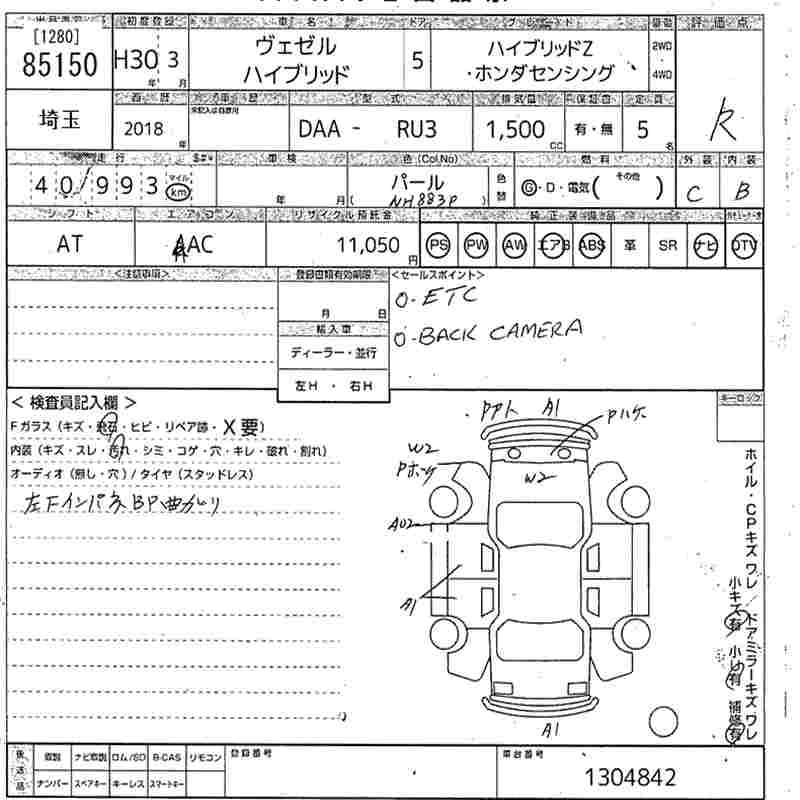 初度登録 車名 ドア グレード 駆動 評価点
[1280]
85150
H30 3
年 月
ヴェゼル
ハイブリッド
5
ハイブリッドZ
・ホンダセンシング
2WD
4WD
R
埼玉
西暦 車歴 型式 排気量 保証書 定員
2018
年
DAA - RU3
1,500
CC
有・無
5
名
走行 車検 色(Col,No) 燃料 外装 内装
40,993
マイル
km
年 月
パール
(NH883P)
色替
G・D・電気( その他 )
C
B
シフト エアコン リサイクル預託金 純正装備品
AT
AAC
11,050
円
PS PW AW エアB ABS 革 SR ナビ TV
<注意事項>
登録書類有効期限
月 日
輸入車
ディーラー・並行
左H ・ 右H
<セールスポイント>
O-ETC
O-BACK CAMERA
キーロック
< 検査員記入欄 >
Fガラス(キズ・飛石・ヒビ・リペア跡・X要)
内装(キズ・スレ・汚れ・シミ・コゲ・穴・キレ・破れ・割れ)
オーディオ(無し・穴)/タイヤ(スタッドレス)
左FインパネBP曲がり
A1
Pハゲ
W2
W2
A02
A1
A1
ホイル・CPキズワレ/ドアミラーキズワレ
小キズ有 小凹有 補修有
後送品
取説 ナビ取説 ロム/SD B-CAS リモコン
ナンバー スペアキー キーレス スマートキー
登録番号
車台番号
1304842